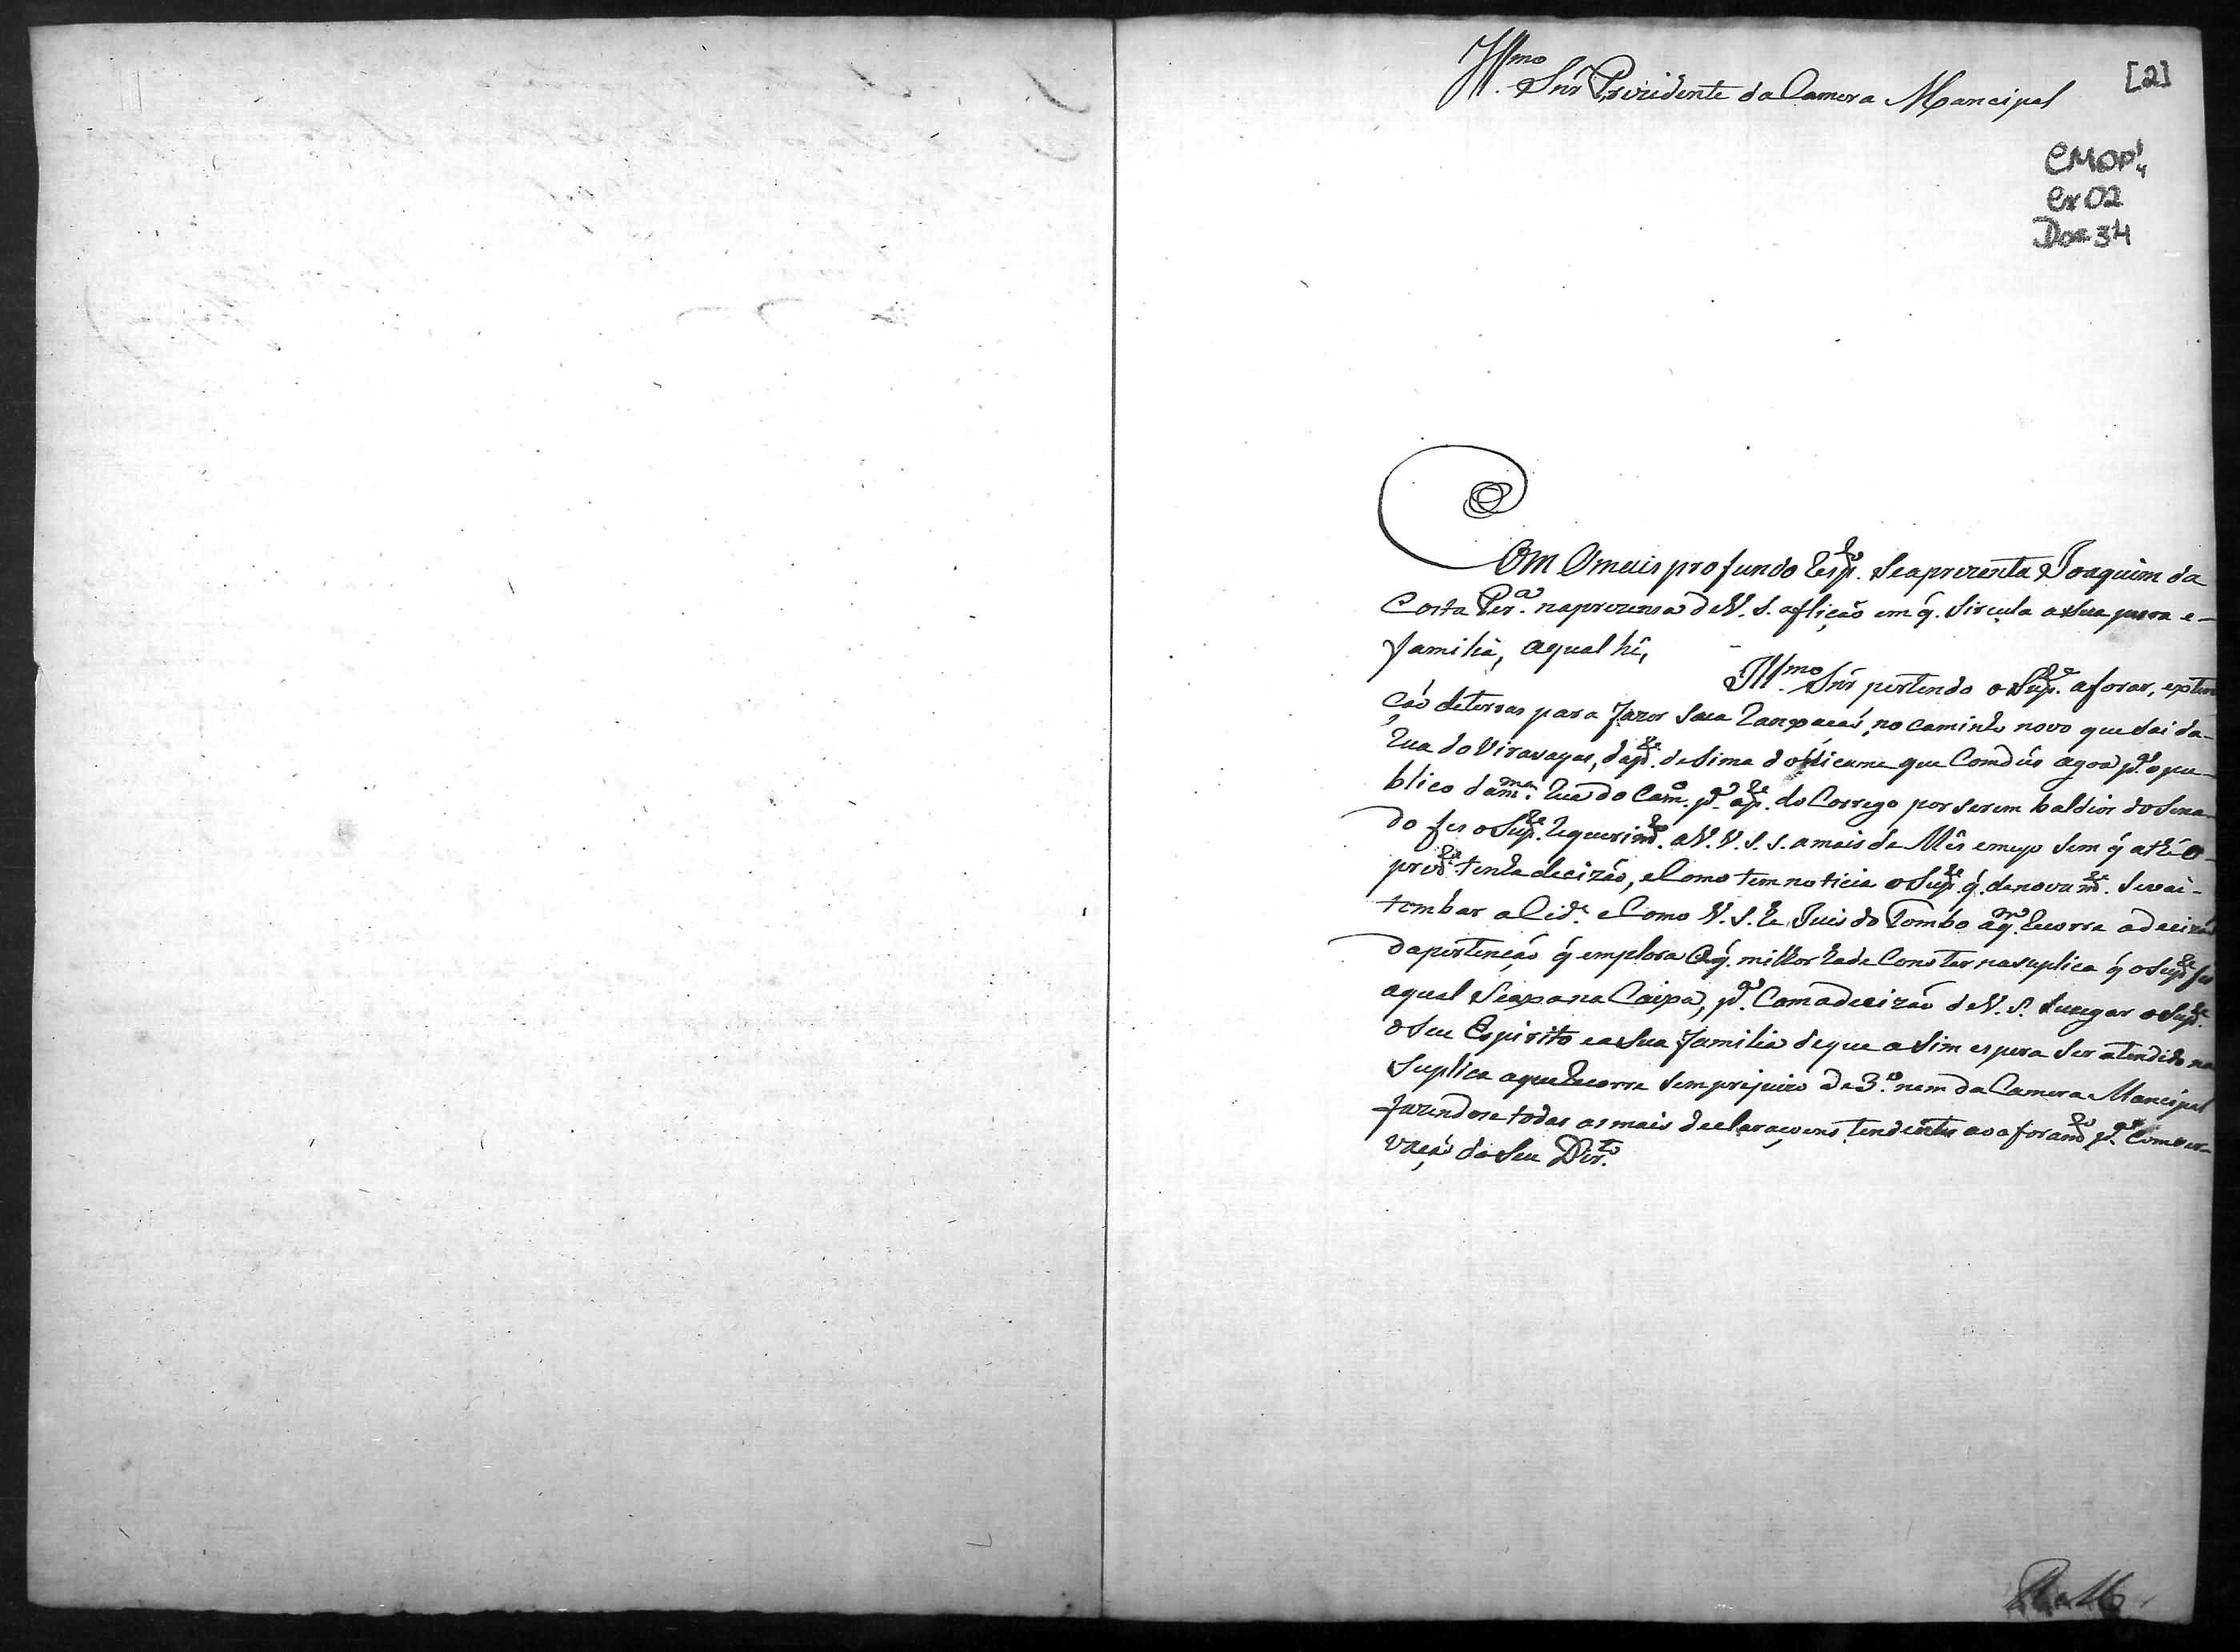 Illmo. Snr Prezidente da Camera Mancipal
[2]
CMOP
Cx 02
Doc 34
Com Omais profundo Resp.to Seaprezenta Joaquim da
Costa Per.a naprezensa de V. S. aflição em q. Sircula asua e-
familia, aqual hé,
Illmo. Snr pertendo o Sup.te aforar, exten
ção deterras para fazer Sua no caminho novo que sai da-
Rua do Virasayas, dap.te desima do que Comdús agoa p.a opu-
blico dam.ma Rua do Cam.o p.a ap.te do Corrego por serem baldios do Sena-
do fes o Sup.te Requerim.to aV. V. S. S. amais de Mês emeyo Sem q athé o-
prez.te tenha decizão, eComo tem noticia o Sup.te q. denovam.te Sevai-
tombar aCid.e eComo V. S. he Juis do Tombo aq.m Recorre adecizão
dapertenção q emplora Oq. milhor hade Constar nasuplica q oSup.te fes
aqual Seaxa na Caixa, p.a Comadecizão deV. S. Sucegar o Sup.te
o Seu Espirito easua familia deque asim espera Ser atendido na
Suplica aque Recorre Semprejuizo de 3.o nem da Camera Mancipal
fazendose todas asmais declaraçoens tendentes ao aforam.to p.a Comser-
vação do Seu Dir.to